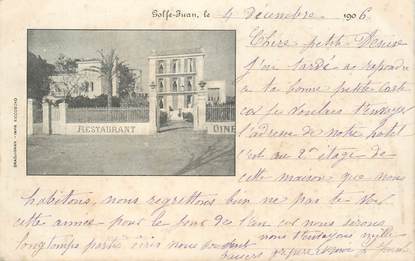 Golfe-Juan, le 4 décembre 1906
Chère petite Denise
j'ai tardé a repondre
a ta bonne petite carte
car je voulais t'envoyer
l'adresse de notre hotel
c'est au 2e étage de
cette maison que nous
habitons, nous regrettons bien ne pas te voir
cette année pour le jour de l'an car nous serons
longtemps partis nous
nous t'envoyons mille
baisers
RESTAURANT
DINE
DRAGUIGNAN - IMP. RICCOBONO